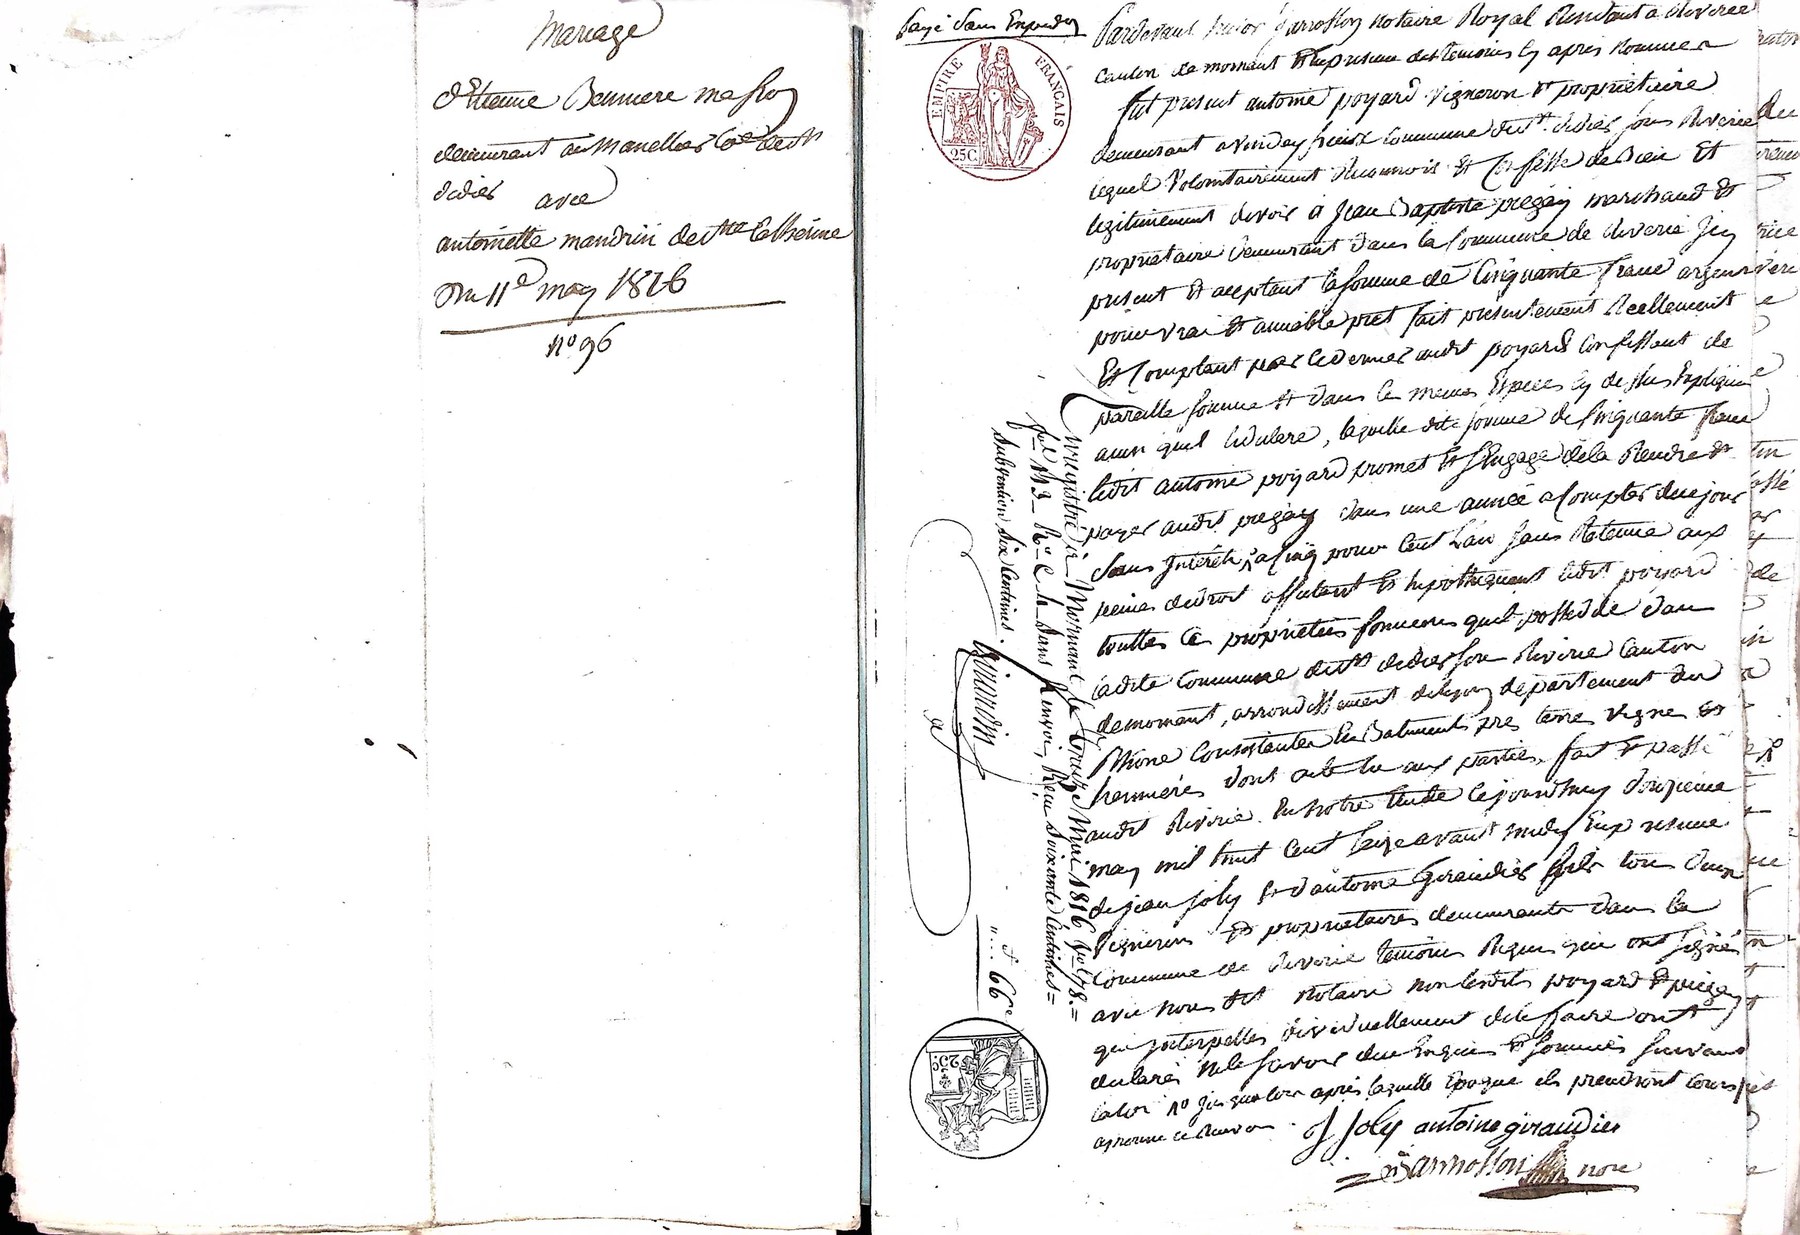 Mariage
d'Etienne Benniere maçon
demeurant au Manellier Cne de St
didier
avec
antoinette mandrin de Ste Catherine
Du 11e may 1816
n° 96
payé Sans Expedon
EMPIRE FRANÇAIS
25C.
Pardevant Victor Jarrosson Notaire Royal Residant a Riverie
canton de mornant Et En presence des temoins cy après nommés
fut present antoine poyard vigneron & propriétaire
demeurant a vindey commune de St didier sous Riverie
lequel volontairement Reconnois Et Confesse de Bien Et
legitimement devoir a Jean Baptiste piegay marchand Et
propriétaire demeurant dans la Commune de Riverie Jcy
present Et acceptant la somme de Cinquante franc argent
pour vrai Et amiable pret fait presentement Reellement
Et Comptant par ce dernier audit poyard Confessent de
pareille somme Et dans les memes Especes cy dessus Expliquée
ainsi quil le declare, laquelle dite somme de Cinquante franc
ledit antoine poyard promet Et s'Engage de la Rendre Et
payer audit piegay dans une année a Compter de ce jour
Sans Intérêts, a Cinq pour Cent L'an sans Retenue aux
peines de droit affectant Et hypothequant ledit poyard
touttes Ces proprietés foncieres quil possede dans
ladite Commune de St didier sous Riverie Canton
de mornant, arrondissement de Lyon département du
Rhône Consistantes En Batiments prés terres vignes Et
hermiéres dont acte lu aux parties, fait Et passé
audit Riverie En notre Etude Ce jourd'huy douzieme
may mil huit Cent Seize avant midy En presence
de jean Joly Et d'antoine Giraudier fils tous deux
Vignerons Et proprietaires demeurants dans la
Commune de Riverie temoins Requis qui ont signé
avec nous dit Notaire non lesdits poyard Et piegay
qui Interpellés individuellement de le faire ont
declarés ne le savoir
la loi jusqu'alors après laquelle Epoque ils prendront cours
J Joly antoine giraudier
Jarrosson nore
Enregistré à Mornant le treize Mai 1816 Vol. 78.=
fol. 113 Ro. C. 4. sans Renvoi, Reçu soixante Centimes=
subvention six Centimes.
66c
25c.